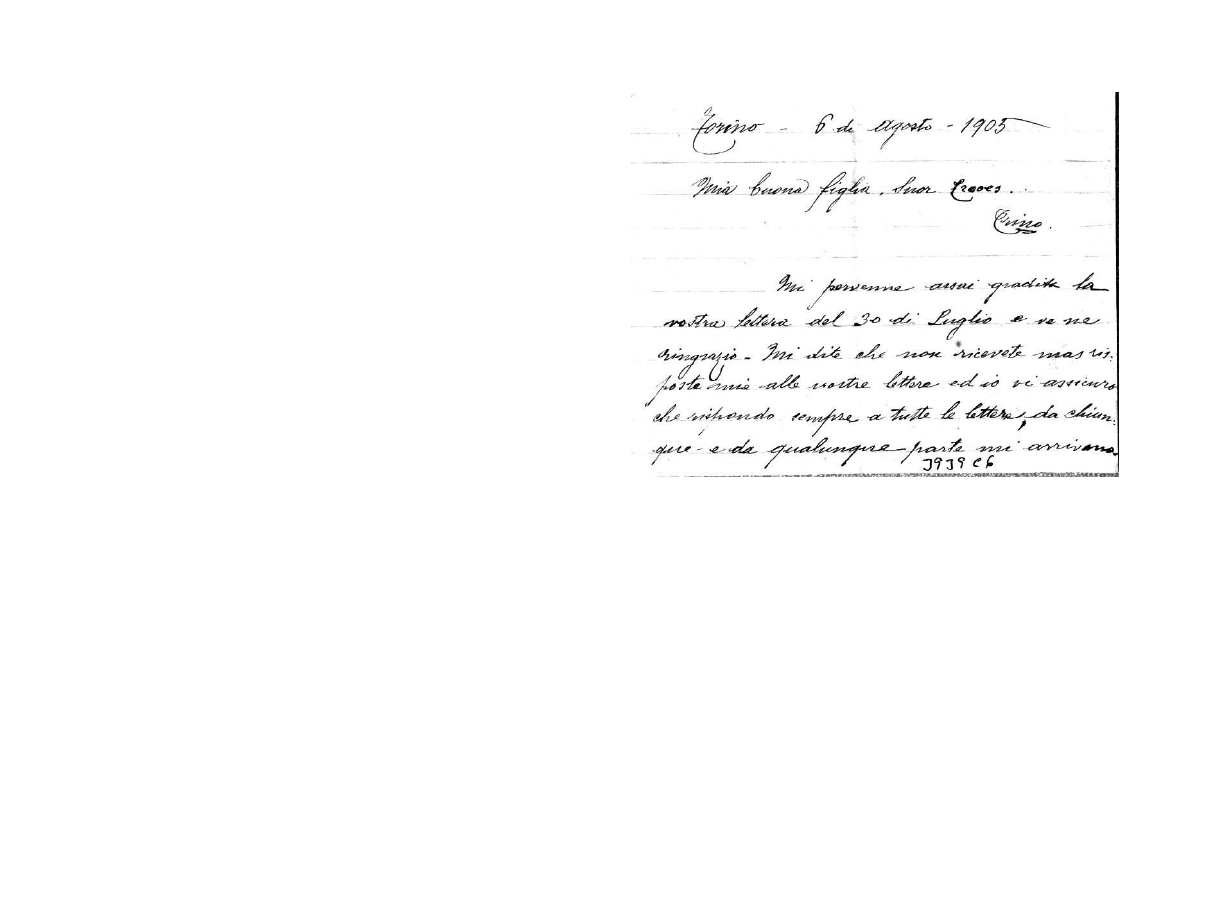 Torino - 6 di Agosto - 1905
Mia buona figlia, Suor Treves.
Trino.
Mi pervenne assai gradita la
vostra lettera del 30 di Luglio e ve ne
ringrazio - Mi dite che non ricevete mas ris:
poste mie alle vostre lettere ed io vi assicuro
che rispondo sempre a tutte le lettere, da chiun:
que e da qualunque parte mi arrivano.
J9J9 C6